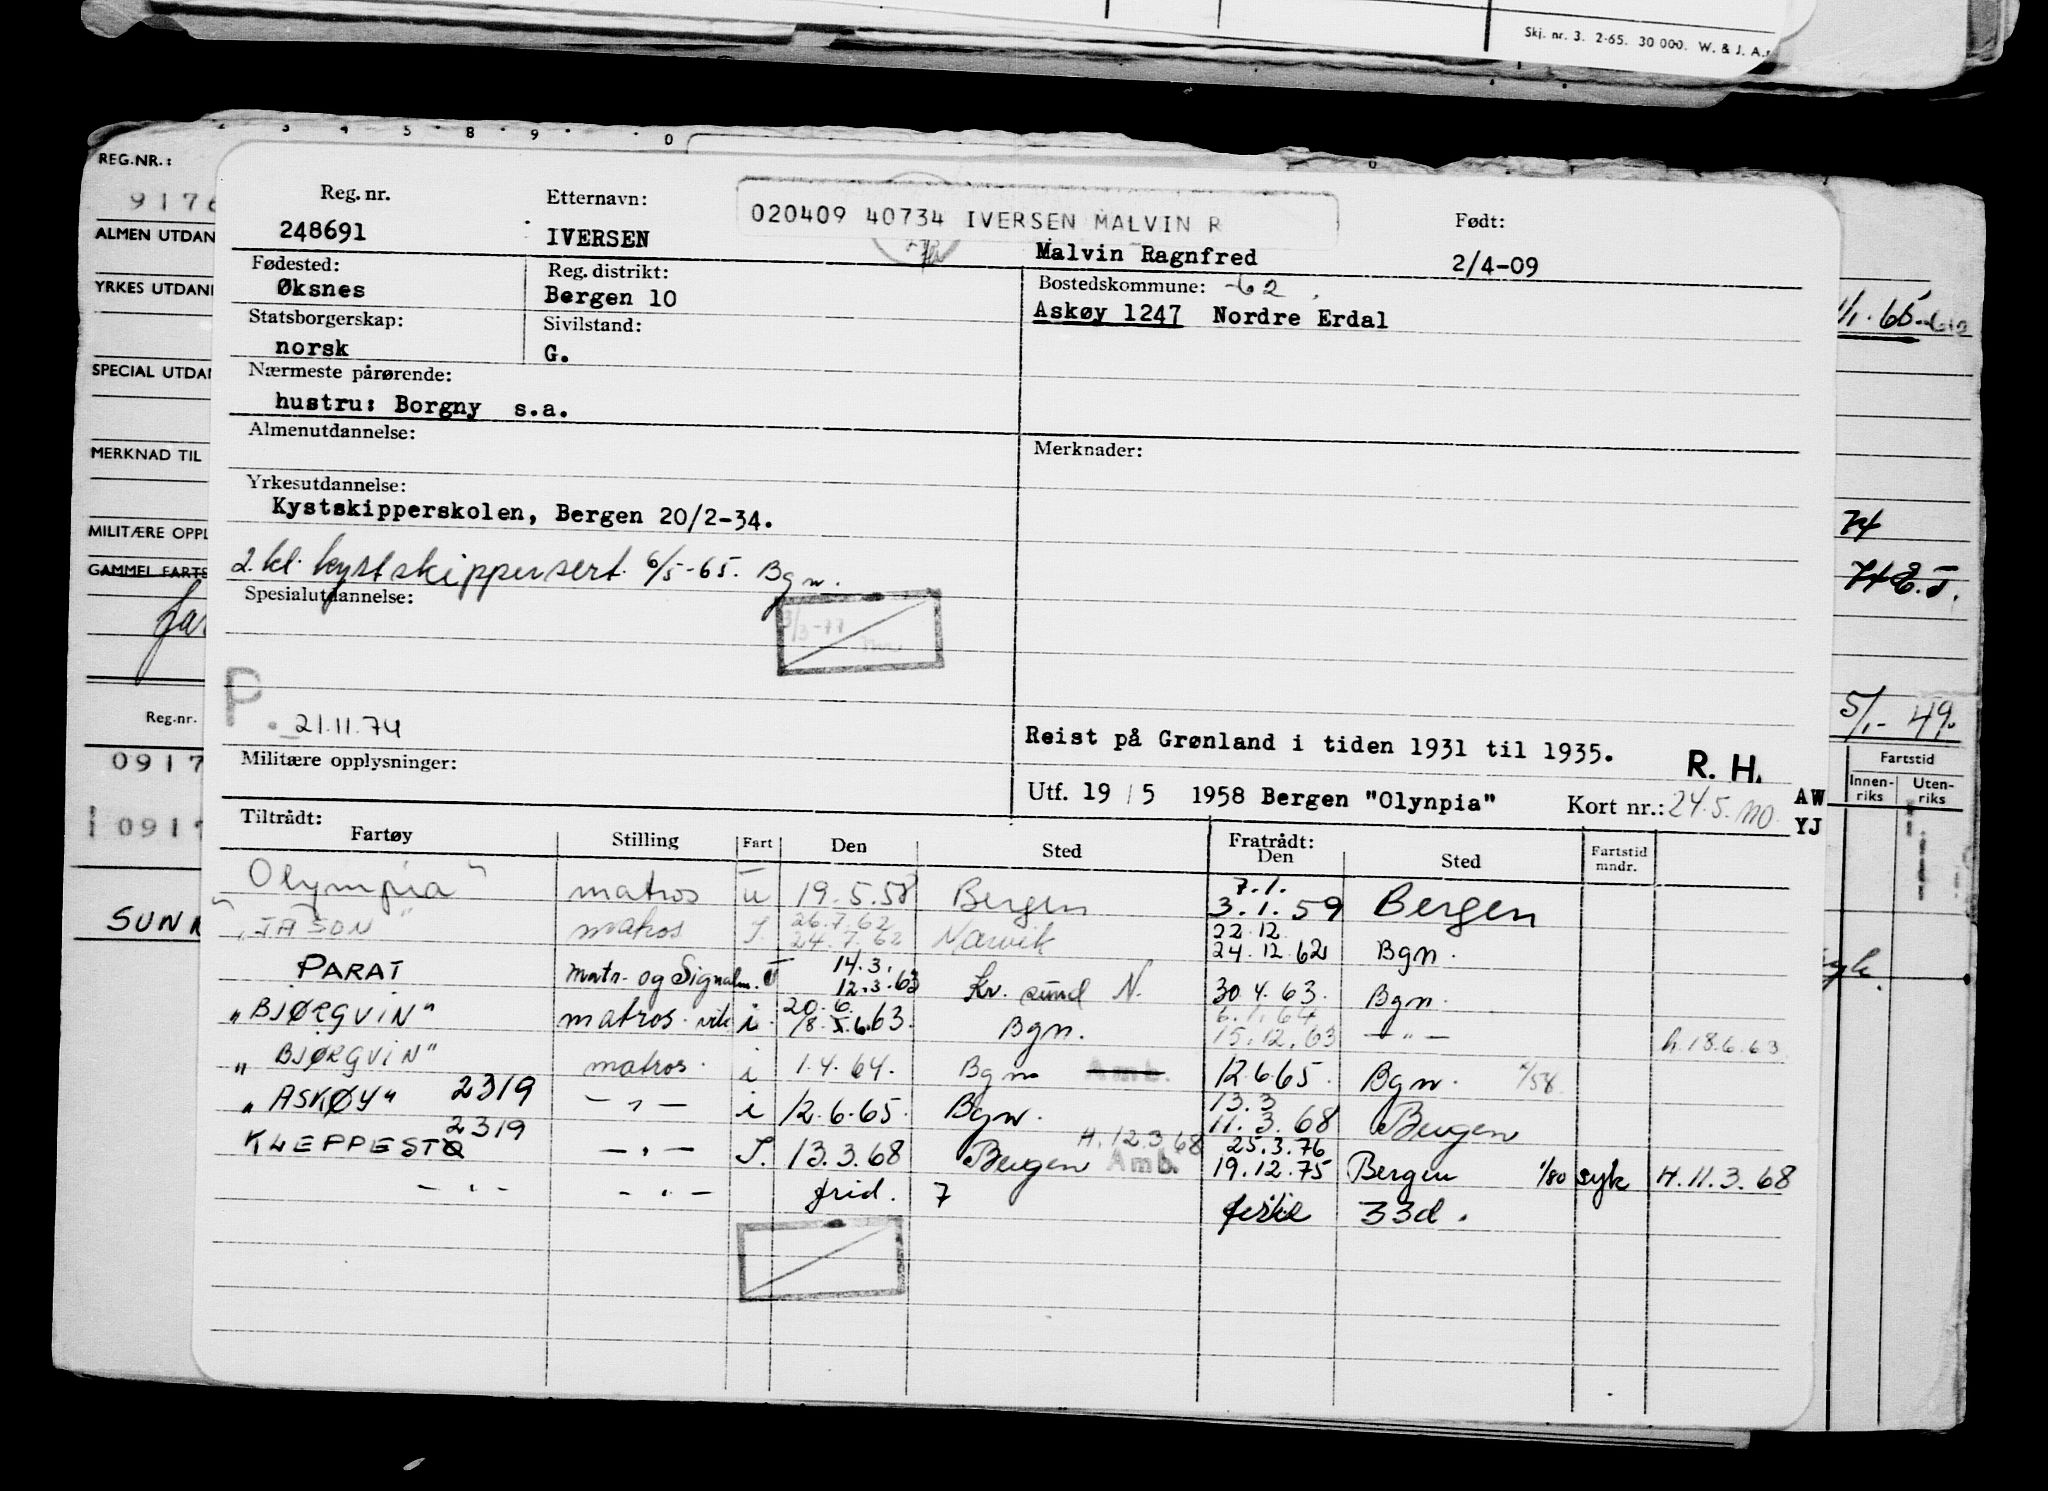 Skj. nr. 3. 2-65. 30 000. W. & J. A.
REG.NR.:
ALMEN UTDAN
YRKES UTDAN
SPECIAL UTDAN
MERKNAD TIL
MILITÆRE OPPL
GAMMEL FARTS
Reg.nr.
0917
0917
SUNN
Reg. nr.
248691
Etternavn:
IVERSEN
020409 40734 IVERSEN MALVIN R
Malvin Ragnfred
Født:
2/4-09
Fødested:
Øksnes
Reg. distrikt:
Bergen 10
Bostedskommune: -62
Askøy 1247 Nordre Erdal
Statsborgerskap:
norsk
Sivilstand:
G.
Nærmeste pårørende:
hustru: Borgny s.a.
Almenutdannelse:
Merknader:
Yrkesutdannelse:
Kystskipperskolen, Bergen 20/2-34.
2.kl. kystskippersert. 6/5-65. Bgn.
Spesialutdannelse:
3/3-77
P.
21.11.74
Militære opplysninger:
Reist på Grønland i tiden 1931 til 1935.
R. H.
Utf. 19 / 5 1958 Bergen "Olynpia" Kort nr.: 24.5.
AW
YJ
Tiltrådt:
Fartøy Stilling Fart Den Sted Fratrådt: Den Sted Fartstid mndr.
"Olympia" matros u 19.5.58 Bergen 7.1. 3.1.59 Bergen
"JASON" matros I. 26.7.62 24.7.62 Narvik 22.12 24.12.62 Bgn.
PARAT matr. og Signalm. 14.3. 12.3.63 Kr. sund N. 30.4.63. Bgn.
"BJØRGVIN" matros. vik i. 20.6. 18.5.6.63. Bgn. 6.1.64 15.12.63 -"- h.18.6.63
"BJØRGVIN" matros. i 1.4.64. Bgn Amb. 12.6.65. Bgn.
"ASKØY" 2319 -"- i 12.6.65. Bgn. 13.3 11.3.68 Bergen
KLEPPESTØ 2319 -"- I. 13.3.68 Bergen H.12.3.68 Amb. 25.3.76 19.12.75 Bergen 1/80 syk H.11.3.68
-"- -"- frid. 7 ferie 33d.
74
5/1-49.
Fartstid
Innen-riks
Uten-riks